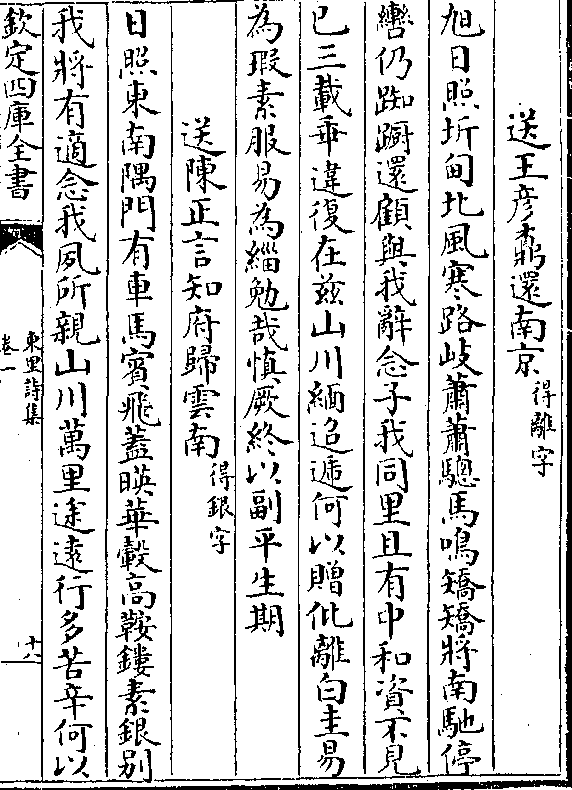 送王彦鼐還南京得離字
旭日照圻甸北風寒路岐蕭蕭驄馬鳴矯矯將南馳停
轡仍踟蹰還顧與我辭念子我同里且有中和資不見
已三載乖違復在兹山川緬迢遞何以贈仳離白圭易
為瑕素服易為緇勉哉慎厥終以副平生期
送陳正言知府歸雲南得銀字
日照東南隅門有車馬賓飛蓋暎華轂高鞍鏤素銀别
我將有適念我夙所親山川萬里途逺行多苦辛何以
欽定四庫全書
東里詩集
卷一
十八